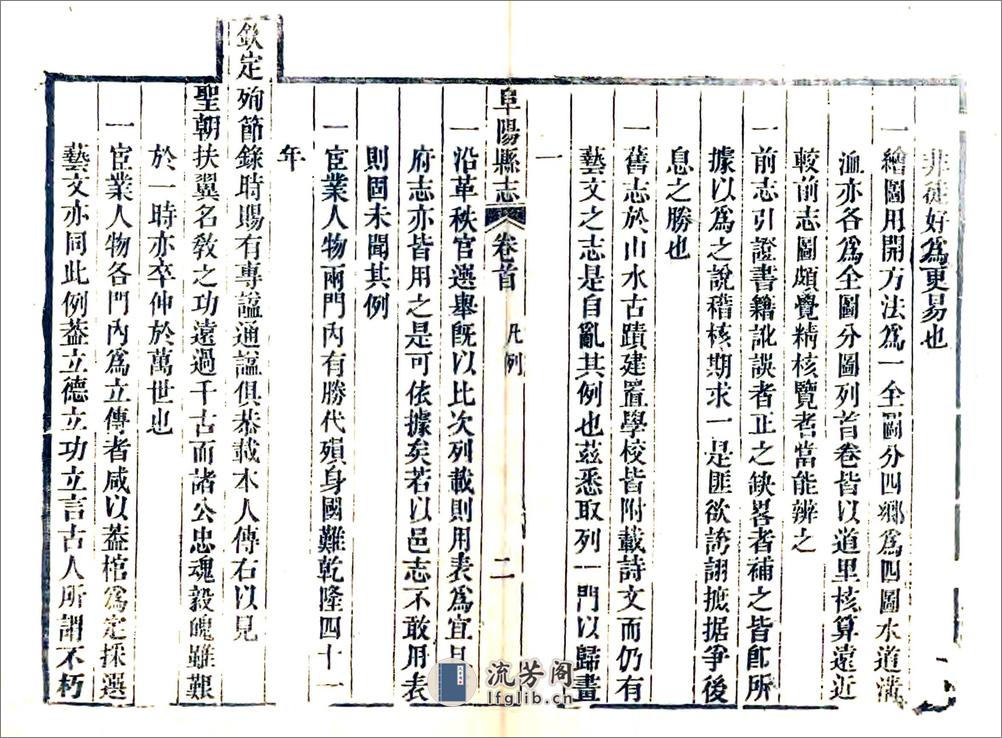 非徒好爲更易也
一繪圖用開方法爲一全圖分四鄉爲四圖水道溝
洫亦各爲全圖分圖列首卷皆以道里核算遠近
較前志圖頗覺精核覽者當能辨之
一前志引證書籍訛誤者正之缺畧者補之皆卽所
據以爲之說稽核期求一是匪欲誇詡摭据爭後
息之勝也
一舊志於山水古蹟建置學校皆附載詩文而仍有
藝文之志是自亂其例也茲悉取列一門以歸畫
一
阜陽縣志 卷首 凡例 二
一沿革秩官選舉旣以比次列載則用表爲宜且
府志亦皆用之是可依據矣若以邑志不敢用表
則固未聞其例
一宦業人物兩門內有勝代殞身國難乾隆四十一
年
欽定殉節錄時賜有專謚通謚俱恭載本人傳右以見
聖朝扶翼名敎之功遠過千古而諸公忠魂毅魄雖艱
於一時亦卒伸於萬世也
一宦業人物各門內爲立傳者咸以蓋棺爲定採選
藝文亦同此例蓋立德立功立言古人所謂不朽
流芳阁
lfglib.cn